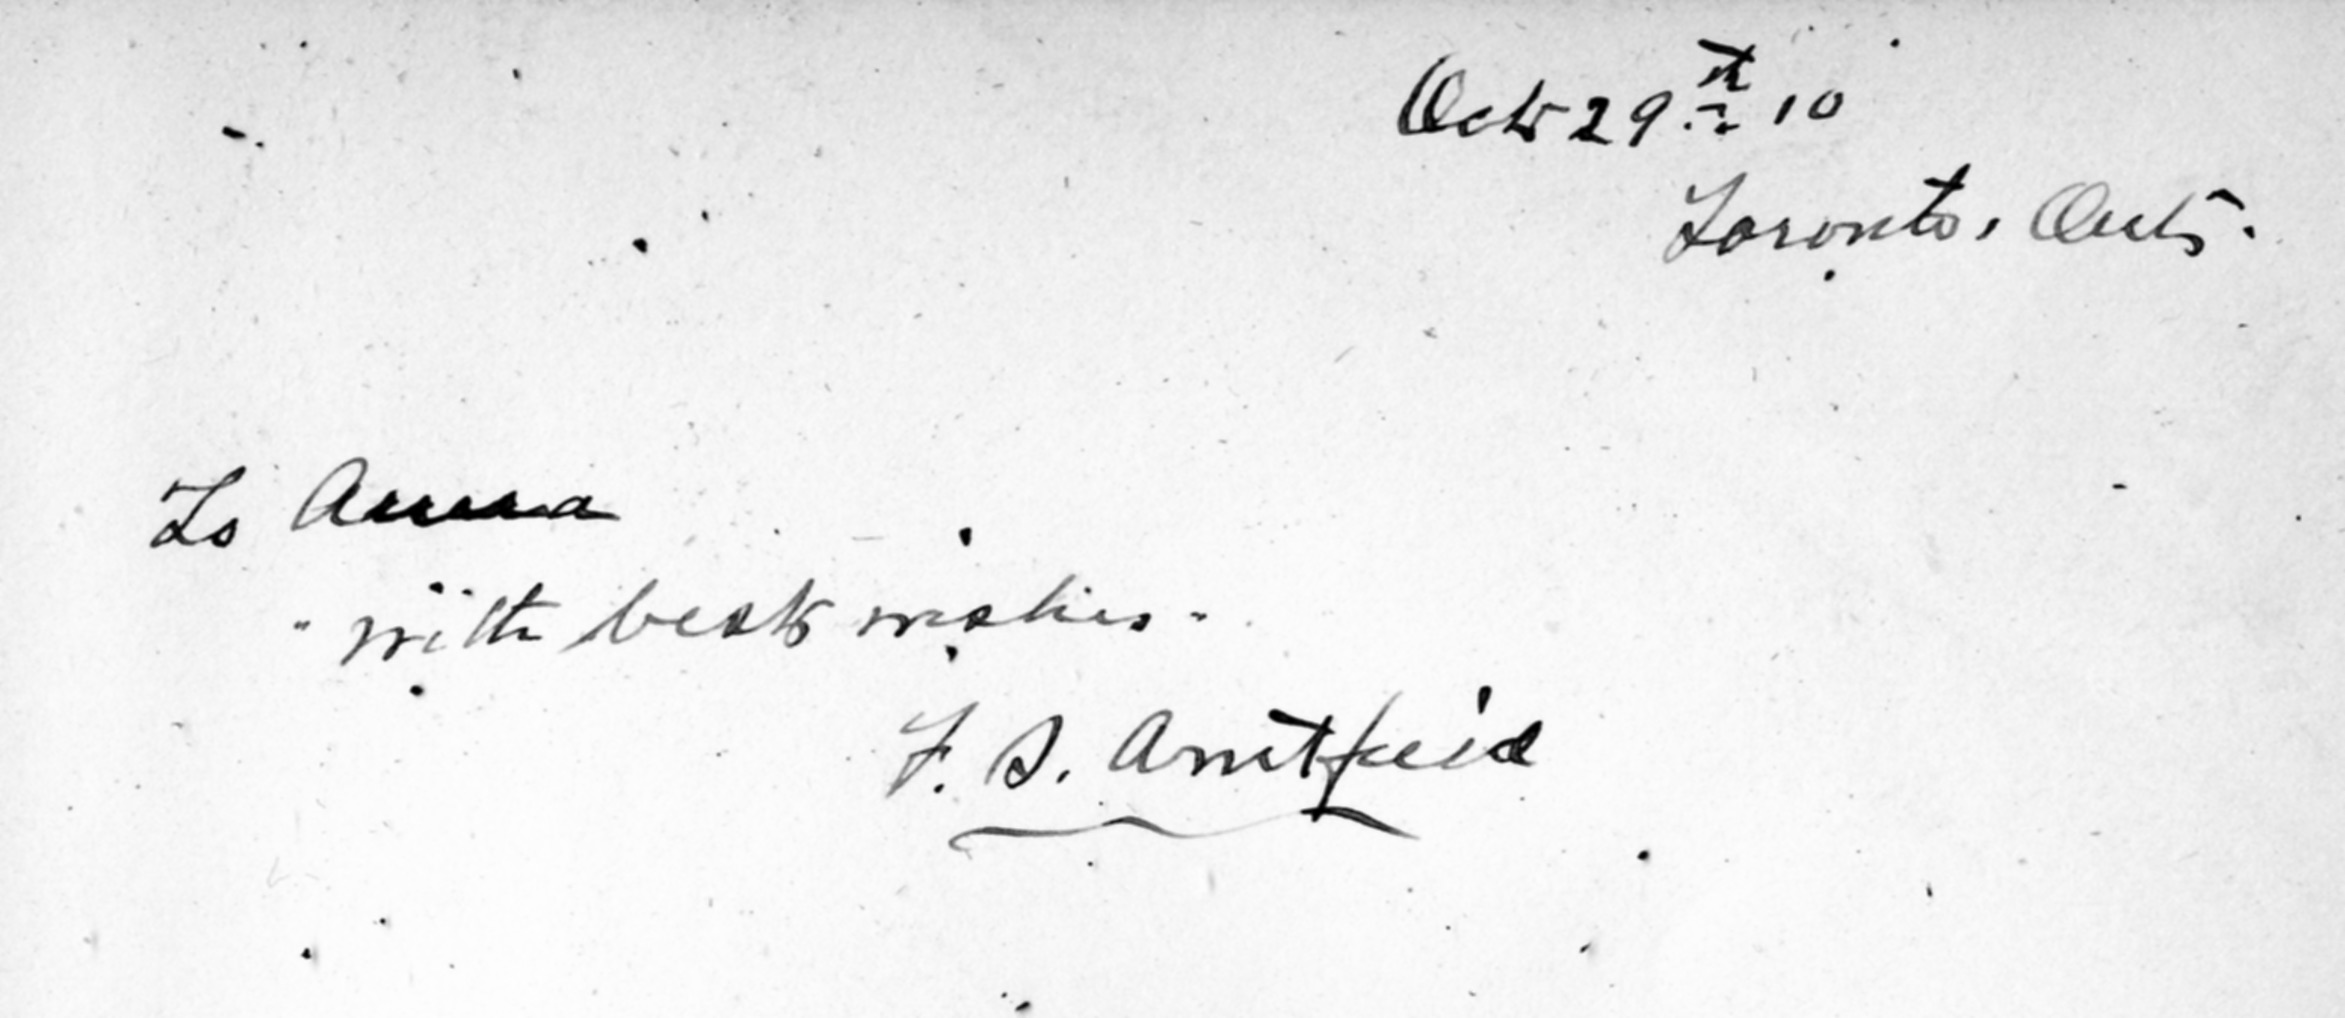 Oct 29th 10
Toronto, Ont.
To Anna
"with best wishes"
F. S.